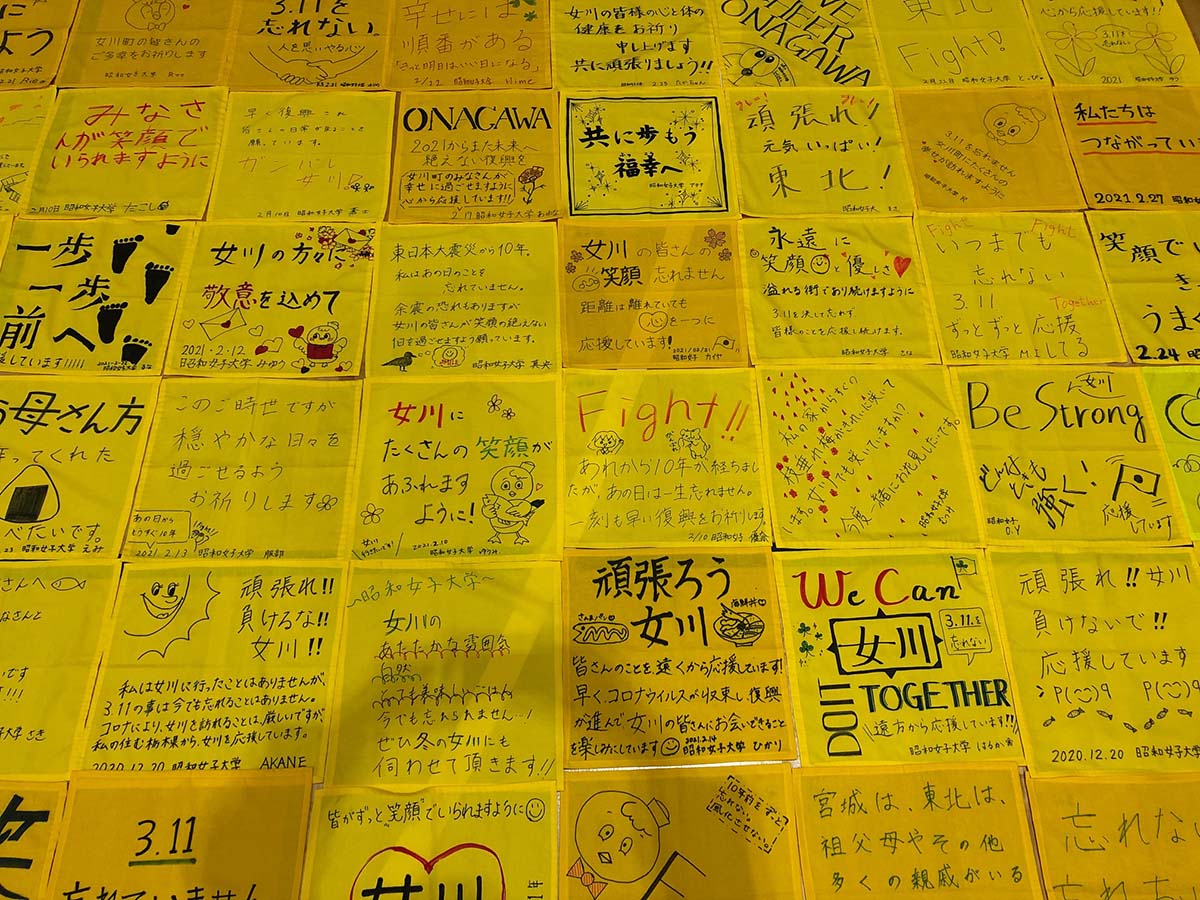 よう
女川町の皆さんの
ご多幸をお祈りします
昭和女子大学
3.11を
忘れない。
人を思いやる心
幸せには
順番がある
「きっと明日はいい日になる」
2/22 昭和女子大 Hime
女川の皆様の心と体の
健康をお祈り
申し上げます
共に頑張りましょう!!
CHEER
ONAGAWA
東北
Fight!
心から応援しています!!
3.11を
忘れない
2021
みなさ
んが笑顔で
いられますように
2月10日 昭和女子大学 たこし
早く復興され
皆さんの日常が戻ることを
願しています。
ガンバレ
女川!
2月10日 昭和女子大学
ONAGAWA
2021からまた未来へ
絶えない復興を
女川町のみなさんが
幸せに過ごせますように
心から応援しています!!
昭和女子大学
共に歩もう
福幸へ
昭和女子大学
フレー!
フレー!
頑張れ!
元気いっぱい!
東北!
昭和女子大
3.11を忘れません
女川町にたくさんの
幸せが訪れますように
昭和女子大学
私たちは
つながってい
2021.2.27 昭和
一歩
一歩
前へ
しています!!!!!
女川の方々に
敬意を込めて
2021・2・12
昭和女子大学 みゆう
東日本大震災から10年。
私はあの日のことを
忘れていません。
余震の恐れもありますが
女川の皆さんが笑顔の絶えない
日を過ごせますよう願っています。
昭和女子大学 真央
女川の皆さんの
笑顔忘れません
距離は離れていても
心を一つに
応援しています!
昭和女子
永遠に
笑顔と優しさ
溢れる街であり続けますように
3.11を決して忘れず
皆様のことを応援し続けます。
昭和女子大学
Fight Fight
いつまでも
忘れない
3.11 Together
ずっとずっと応援
してる
昭和女子大学
笑顔で
き
うま
2.24 昭
お母さん方
作ってくれた
べたいです。
昭和女子大学 えみ
このご時世ですが
穏やかな日々を
過ごせるよう
お祈りします
あの日から
もうすぐ10年
2021.2.13 昭和女子大学 服部
女川に
たくさんの笑顔が
あふれます
ように!
女川
2021.2.10
昭和女子大学
Fight!!
あれから10年が経ちまし
たが、あの日は一生忘れません。
一刻も早い復興をお祈りします。
2/10 昭和女子
私の家からもくの
枝垂れ梅がきれいに咲いて
ます。女川でも咲いていますか?
今度一緒にお花見したいです。
昭和女子大学
女川
Be Strong
強く!
応援しています
昭和女子
O.Y
さんへ
です
!!!
頑張れ!!
負けるな!!
女川!!
私は女川に行ったことはありませんが
3.11の事は今でも忘れることはありません。
コロナにより、女川を訪れることは、厳しいですが、
私の住む栃木県から、女川を応援しています。
2020.12.20 昭和女子大学 AKANE
~昭和女子大学~
女川の
あたたかな雰囲気
自然
とても美味しいごはん
今でも忘れられません…!
ぜひ冬の女川にも
伺わせて頂きます!!
頑張ろう
女川
さんまパン
海鮮丼
皆さんのことを遠くから応援しています!
早くコロナウイルスが収束し復興
が進んで、女川の皆さんにお会いできること
を楽しみにしています
2021.2.14
昭和女子大学 ひかり
We Can
女川
3.11を
忘れない
DO IT
TOGETHER
遠方から応援しています!!
昭和女子大学 はるか
頑張れ!!女川
負けないで!!
応援しています
2020.12.20 昭和女子大学
笑
3.11
忘れていません
皆がずっと"笑顔"でいられますように
女川
風化させない。
宮城は、東北は、
祖父母やその他
多くの親戚がいる
忘れな